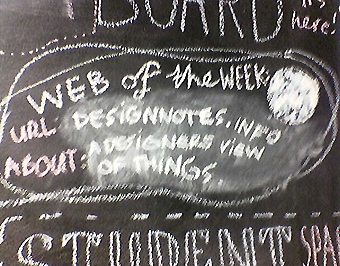 BOARD
it's
here!
WEB of the WEEK:
URL: DESIGNNOTES.INFO
ABOUT: A DESIGNERS VIEW
OF THINGS
STUDENT